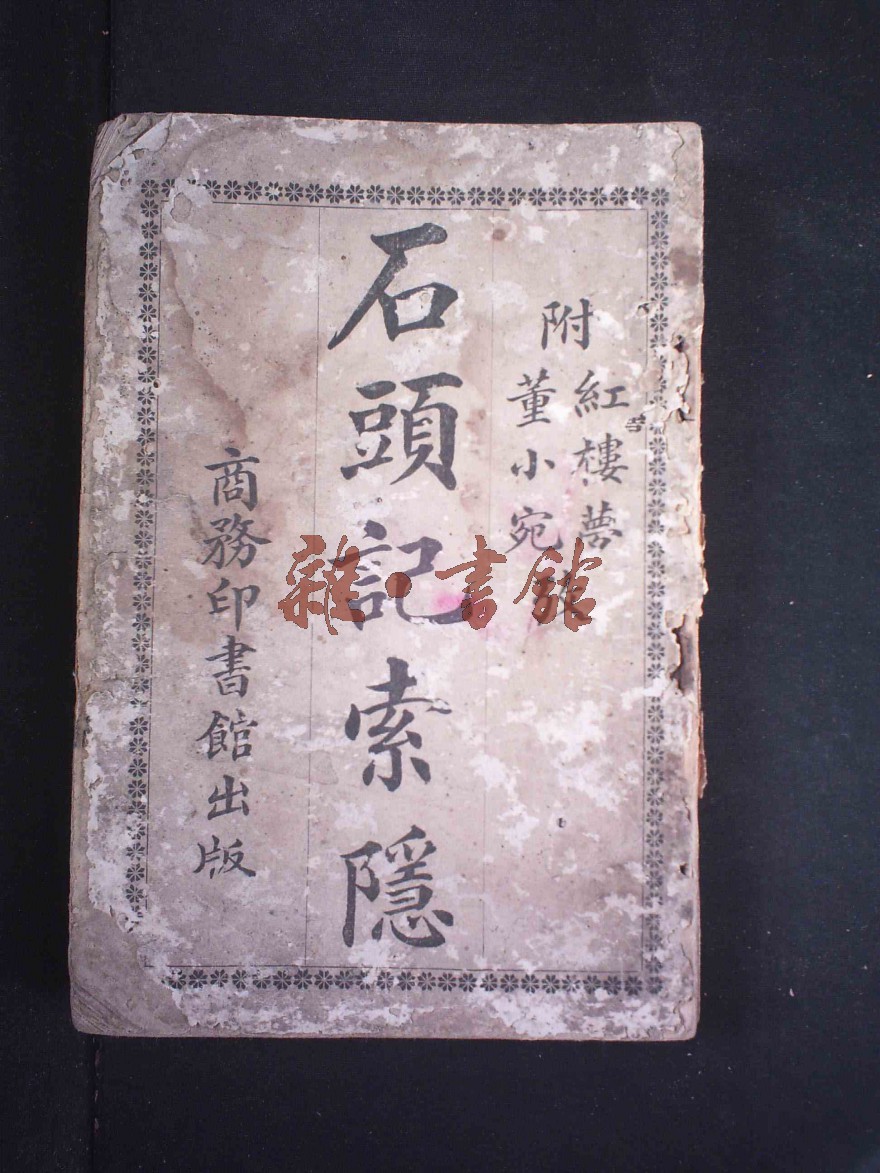 附
紅樓夢
董小宛
石頭記索隱
商務印書館出版
雜·書館